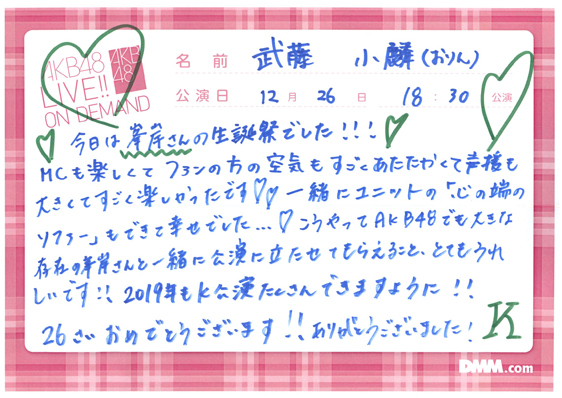 AKB48
LIVE!!
ON DEMAND
AKB
48
名前 武藤 小麟(おりん)
公演日 12月26日 18:30 公演
今日は峯岸さんの生誕祭でした!!!
MCも楽しくてファンの方の空気もすごくあたたかくて声援も
大きくてすごく楽しかったです♡♡一緒にユニットの「心の端の
ソファー」もできて幸せでした...♡こうやってAKB48でも大きな
存在の峯岸さんと一緒に公演に立たせてもらえること、とてもうれ
しいです!!2019年もK公演たくさんできますように!!
26さいおめでとうございます!!ありがとうございました!
K
DMM.com